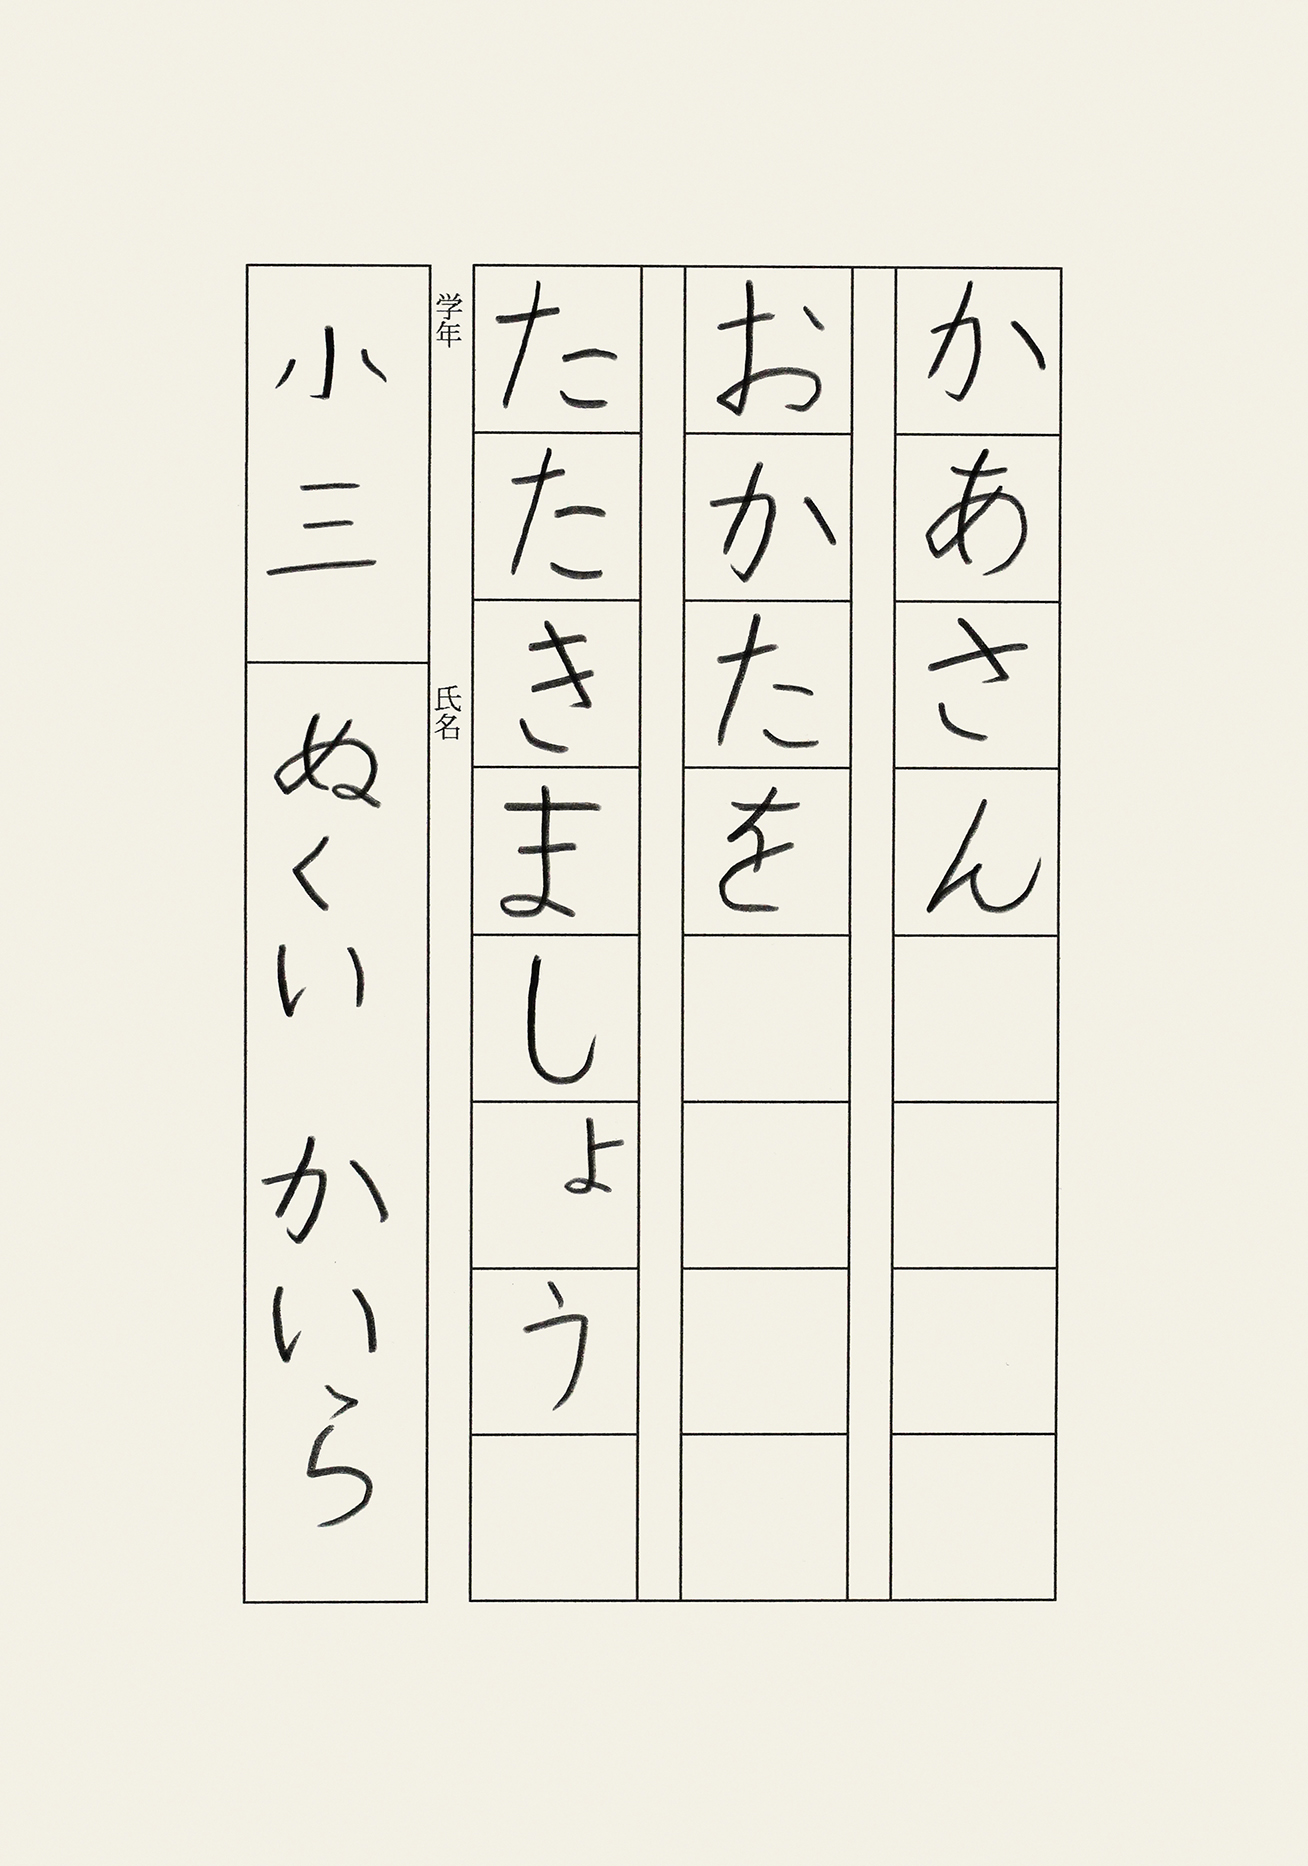 かあさん
おかたを
たたきましょう
学年
小三
氏名
ぬくい かいら